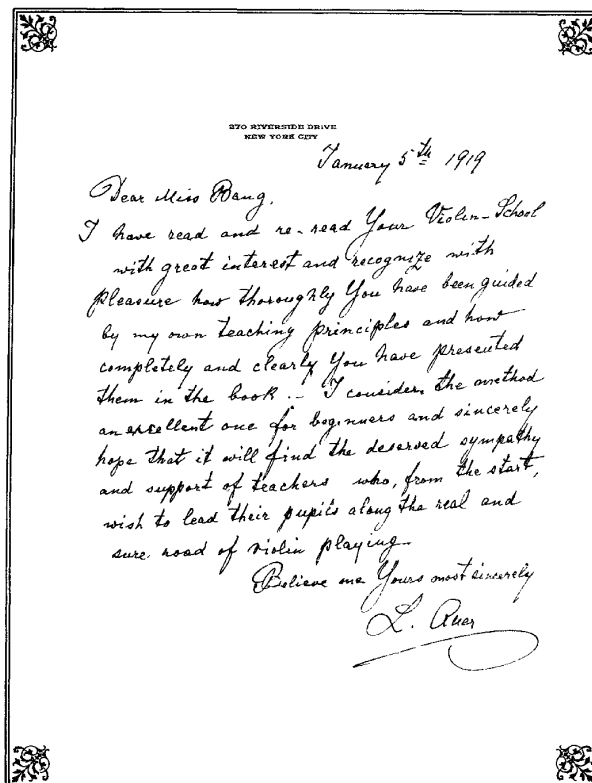 270 RIVERSIDE DRIVE
NEW YORK CITY
January 5th 1919
Dear Miss Bang,
I have read and re-read Your Violin-School
with great interest and recognize with
pleasure how thoroughly You have been guided
by my own teaching principles and how
completely and clearly You have presented
them in the book. - I consider the method
an excellent one for beginners and sincerely
hope that it will find the deserved sympathy
and support of teachers who, from the start,
wish to lead their pupils along the real and
sure road of violin playing.
Believe me Yours most sincerely
L. Auer